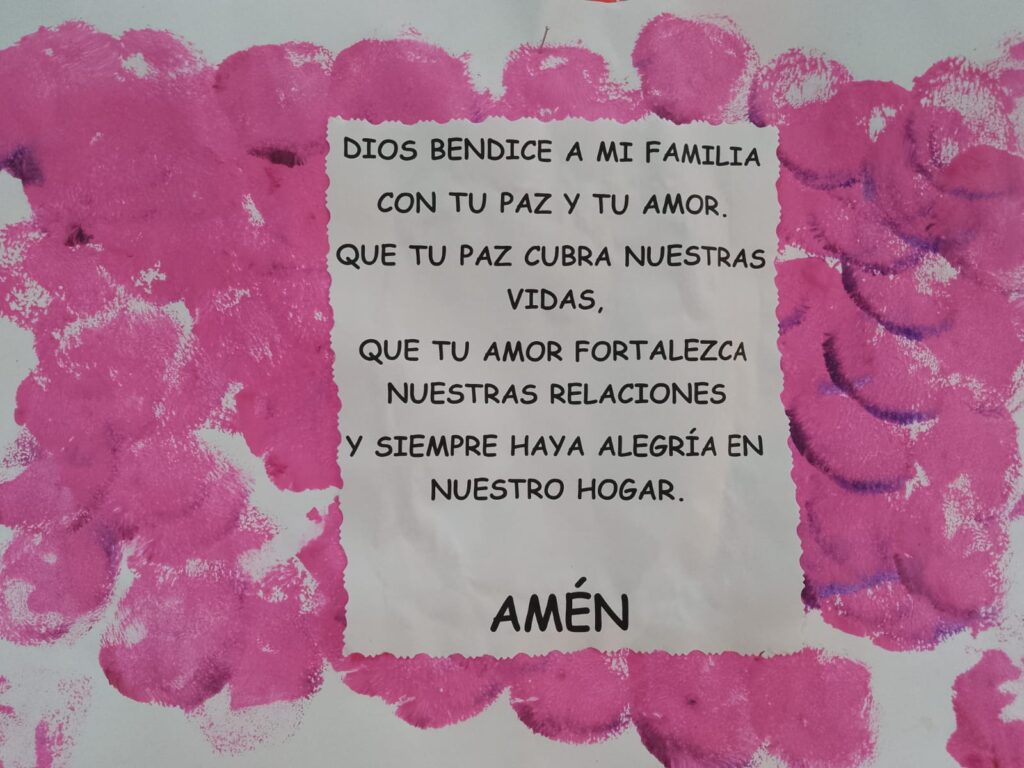 DIOS BENDICE A MI FAMILIA
CON TU PAZ Y TU AMOR.
QUE TU PAZ CUBRA NUESTRAS
VIDAS,
QUE TU AMOR FORTALEZCA
NUESTRAS RELACIONES
Y SIEMPRE HAYA ALEGRÍA EN
NUESTRO HOGAR.
AMÉN